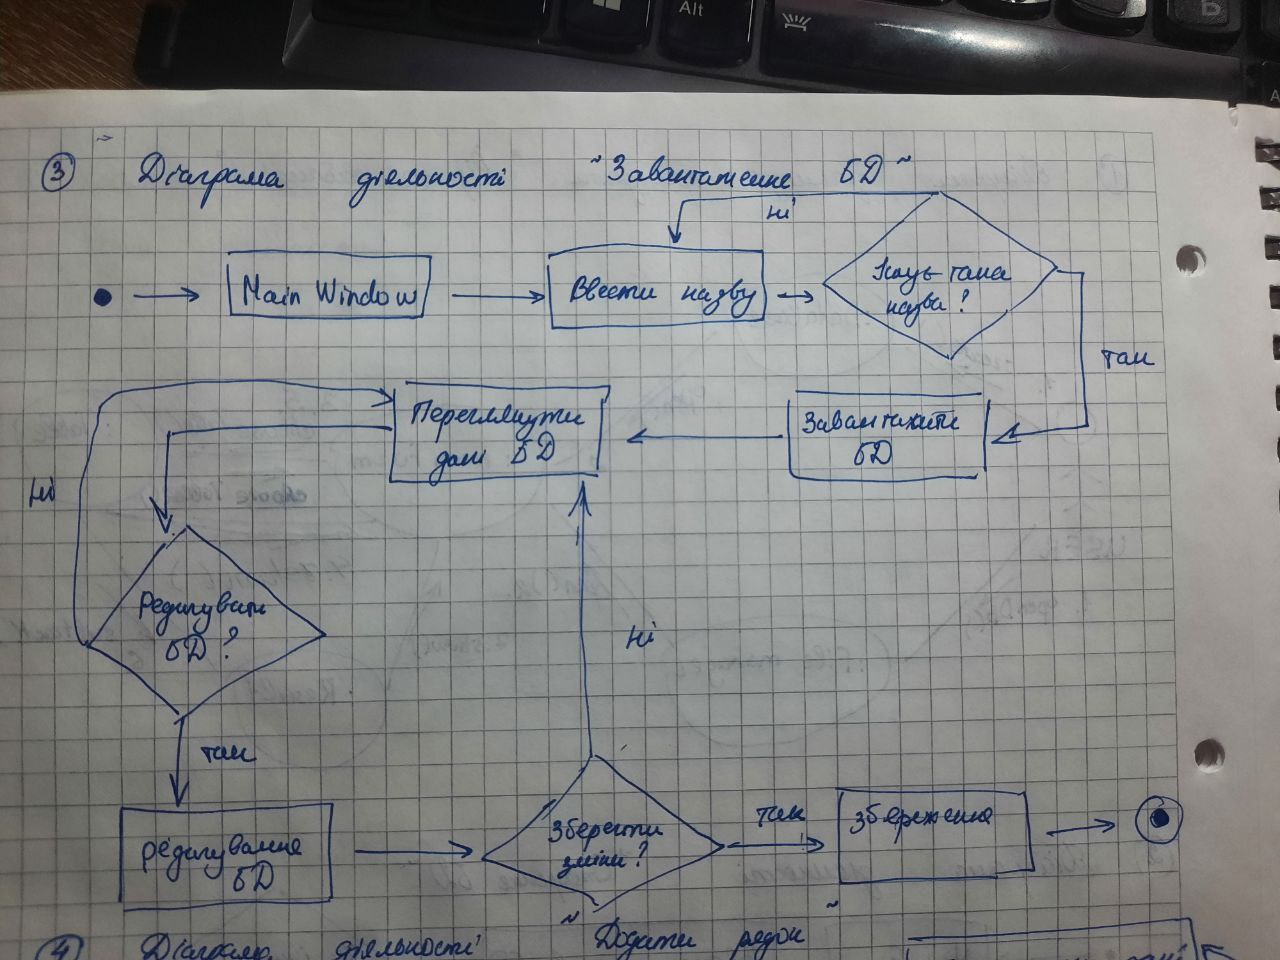 3 Діаграма діяльності "Завантаження БД"
ні
Main Window
Ввести назву
Існує така
назва?
так
Переглянути
дані БД
Завантажити
БД
ні
Редагувати
БД?
ні
так
редагування
БД
Зберегти
зміни?
так
збереження
4 Діаграма діяльності "Додати рядок"
Alt